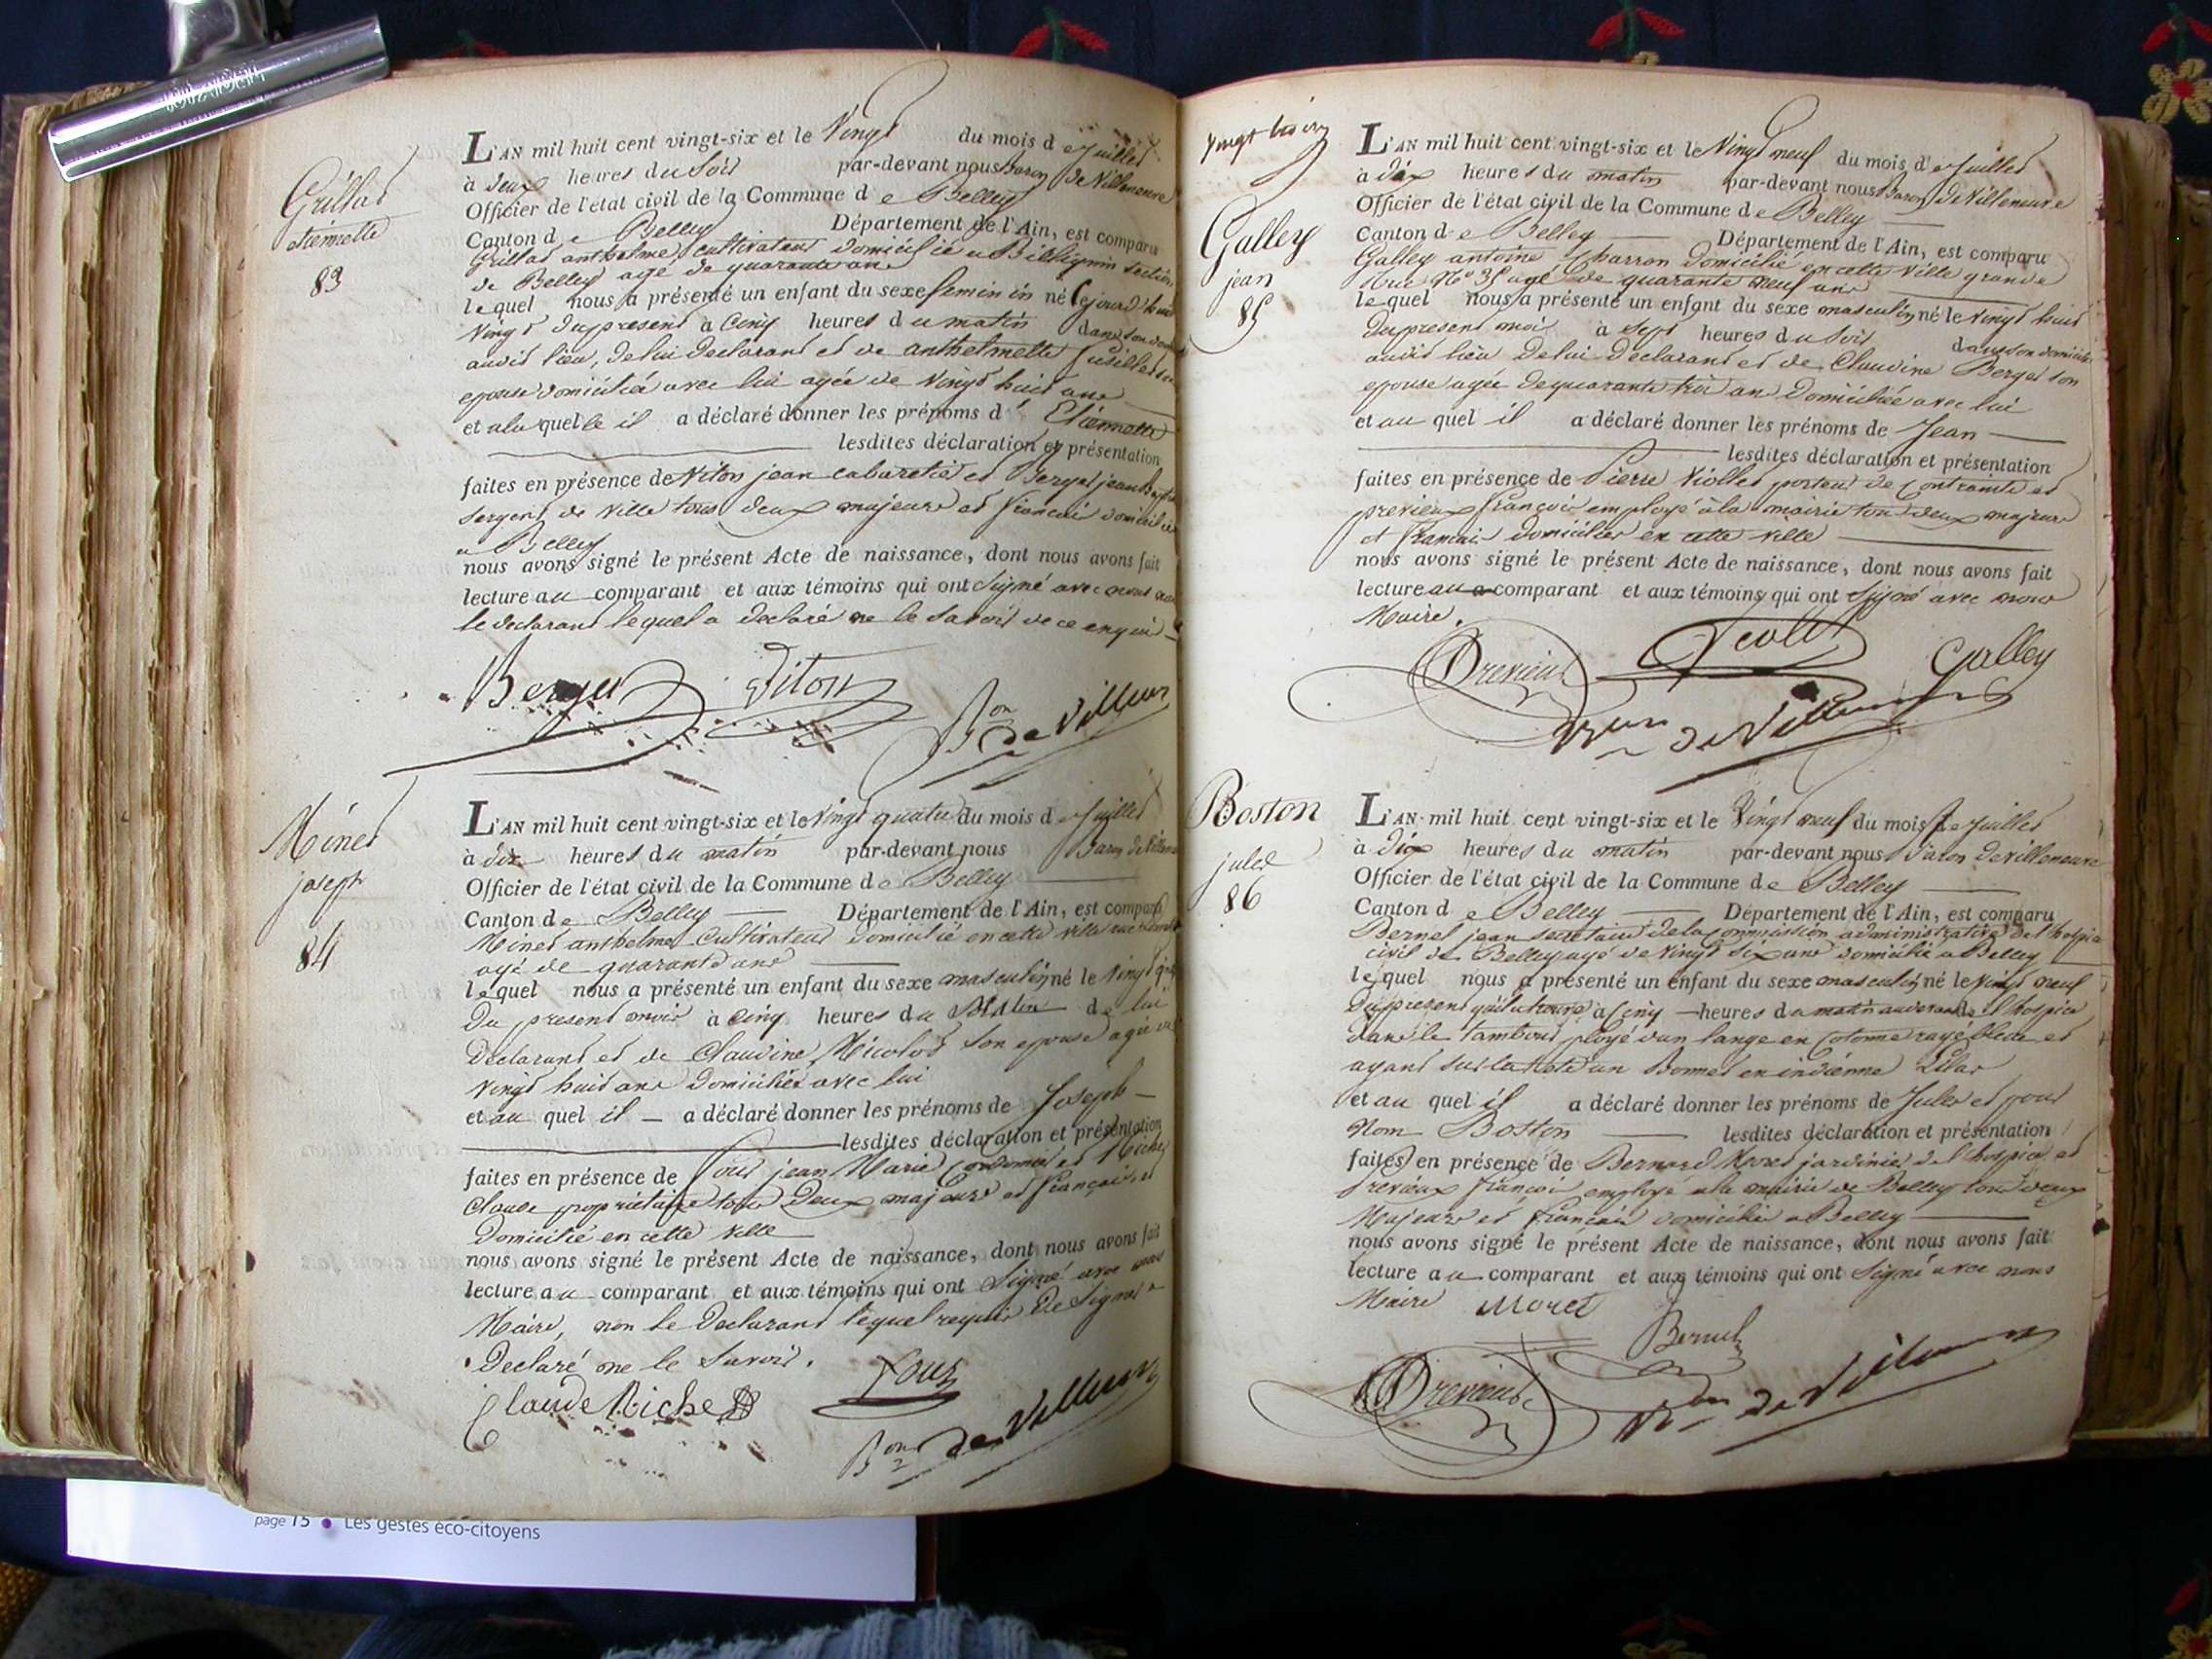 Grillat
étiennette
83
L'AN mil huit cent vingt-six et le Vingt du mois de juillet
à deux heures du Soir par-devant nous Baron de Villeneuve
Officier de l'état civil de la Commune de Belley
Canton de Belley Département de l'Ain, est comparu
Grillat anthelme cultivateur domicilié a Billignin section
de Belley agé de quarante ans
lequel nous a présenté un enfant du sexe feminin né cejourd'hui
Vingt du present à Cinq heures du matin dans son
audit lieu, de lui declarant et de anthelmette
epouse domiciliée avec lui agée de Vingt huit ans
et a la quelle il a déclaré donner les prénoms d' Etiennette
lesdites déclaration et présentation
faites en présence de Viton jean cabaretier et Berger jean
Sergent de Ville tous deux majeurs et francais domiciliés
a Belley
nous avons signé le présent Acte de naissance, dont nous avons fait
lecture au comparant et aux témoins qui ont Signé avec nous
le declarant lequel a declaré ne le Savoir de ce enquis
Berger Viton
Bon de Villeneuve
Minet
joseph
84
L'AN mil huit cent vingt-six et le Vingt quatre du mois de juillet
à dix heures du matin par-devant nous Baron de Villeneuve
Officier de l'état civil de la Commune de Belley
Canton de Belley Département de l'Ain, est comparu
Minet anthelme Cultivateur domicilié en cette ville
agé de quarante ans
lequel nous a présenté un enfant du sexe masculin né le Vingt
Du present mois à Cinq heures du Matin de lui
Declarant et de Claudine Nicolod son epouse agée de
Vingt huit ans domiciliée avec lui
et au quel il a déclaré donner les prénoms de Joseph
lesdites déclaration et présentation
faites en présence de jean Marie Cordonnier et Miche
Claude propriétaire tous Deux majeurs et français
Domicilié en cette Ville
nous avons signé le présent Acte de naissance, dont nous avons fait
lecture au comparant et aux témoins qui ont Signé avec nous
Maire, non le Declarant lequel requis de Signer a
Declaré ne le Savoir.
Claude
Bon de Villeneuve
page 15 • Les gestes éco-citoyens
Galley
jean
85
L'AN mil huit cent vingt-six et le Vingt neuf du mois de juillet
à dix heures du matin par-devant nous Baron de Villeneuve
Officier de l'état civil de la Commune de Belley
Canton de Belley Département de l'Ain, est comparu
Galley antoine Charron domicilié en cette Ville grande
Rue No 35 agé de quarante neuf ans
lequel nous a présenté un enfant du sexe masculin né le Vingt huit
du present mois à Sept heures du Soir dans son domicile
audit lieu De lui Declarant et de Claudine Berger son
epouse agée de quarante trois ans Domiciliée avec lui
et au quel il a déclaré donner les prénoms de Jean
lesdites déclaration et présentation
faites en présence de Pierre Viollet porteur de Contrainte et
previeux françois employé à la mairie tous deux majeurs
et francais domiciliés en cette ville
nous avons signé le présent Acte de naissance, dont nous avons fait
lecture au comparant et aux témoins qui ont Signé avec nous
Maire.
Previeux Galley
de Villeneuve
Boston
jules
86
L'AN mil huit cent vingt-six et le Vingt neuf du mois de juillet
à Dix heures du matin par-devant nous Baron de Villeneuve
Officier de l'état civil de la Commune de Belley
Canton de Belley Département de l'Ain, est comparu
Bernel jean secretaire de la Commission administrative de l'hospice
civil de Belley agé de Vingt Six ans domicilié a Belley
lequel nous a présenté un enfant du sexe masculin né le Vingt neuf
Du present qu'il a trouvé à Cinq heures du matin l'hospice
dans le tambour ployé d'un lange en Cotonne rayé bleue et
ayant sur la tete un Bonnet en indienne Lilas
et au quel il a déclaré donner les prénoms de Jules et pour
Nom Boston lesdites déclaration et présentation
faites en présence de Bernard Moret jardinier de l'hospice et
Previeux françois employé a la mairie de Belley tous deux
Majeurs et francais domiciliés a Belley
nous avons signé le présent Acte de naissance, dont nous avons fait
lecture au comparant et aux témoins qui ont Signé avec nous
Maire Moret
Bernel
Previeux
Bon de Villeneuve